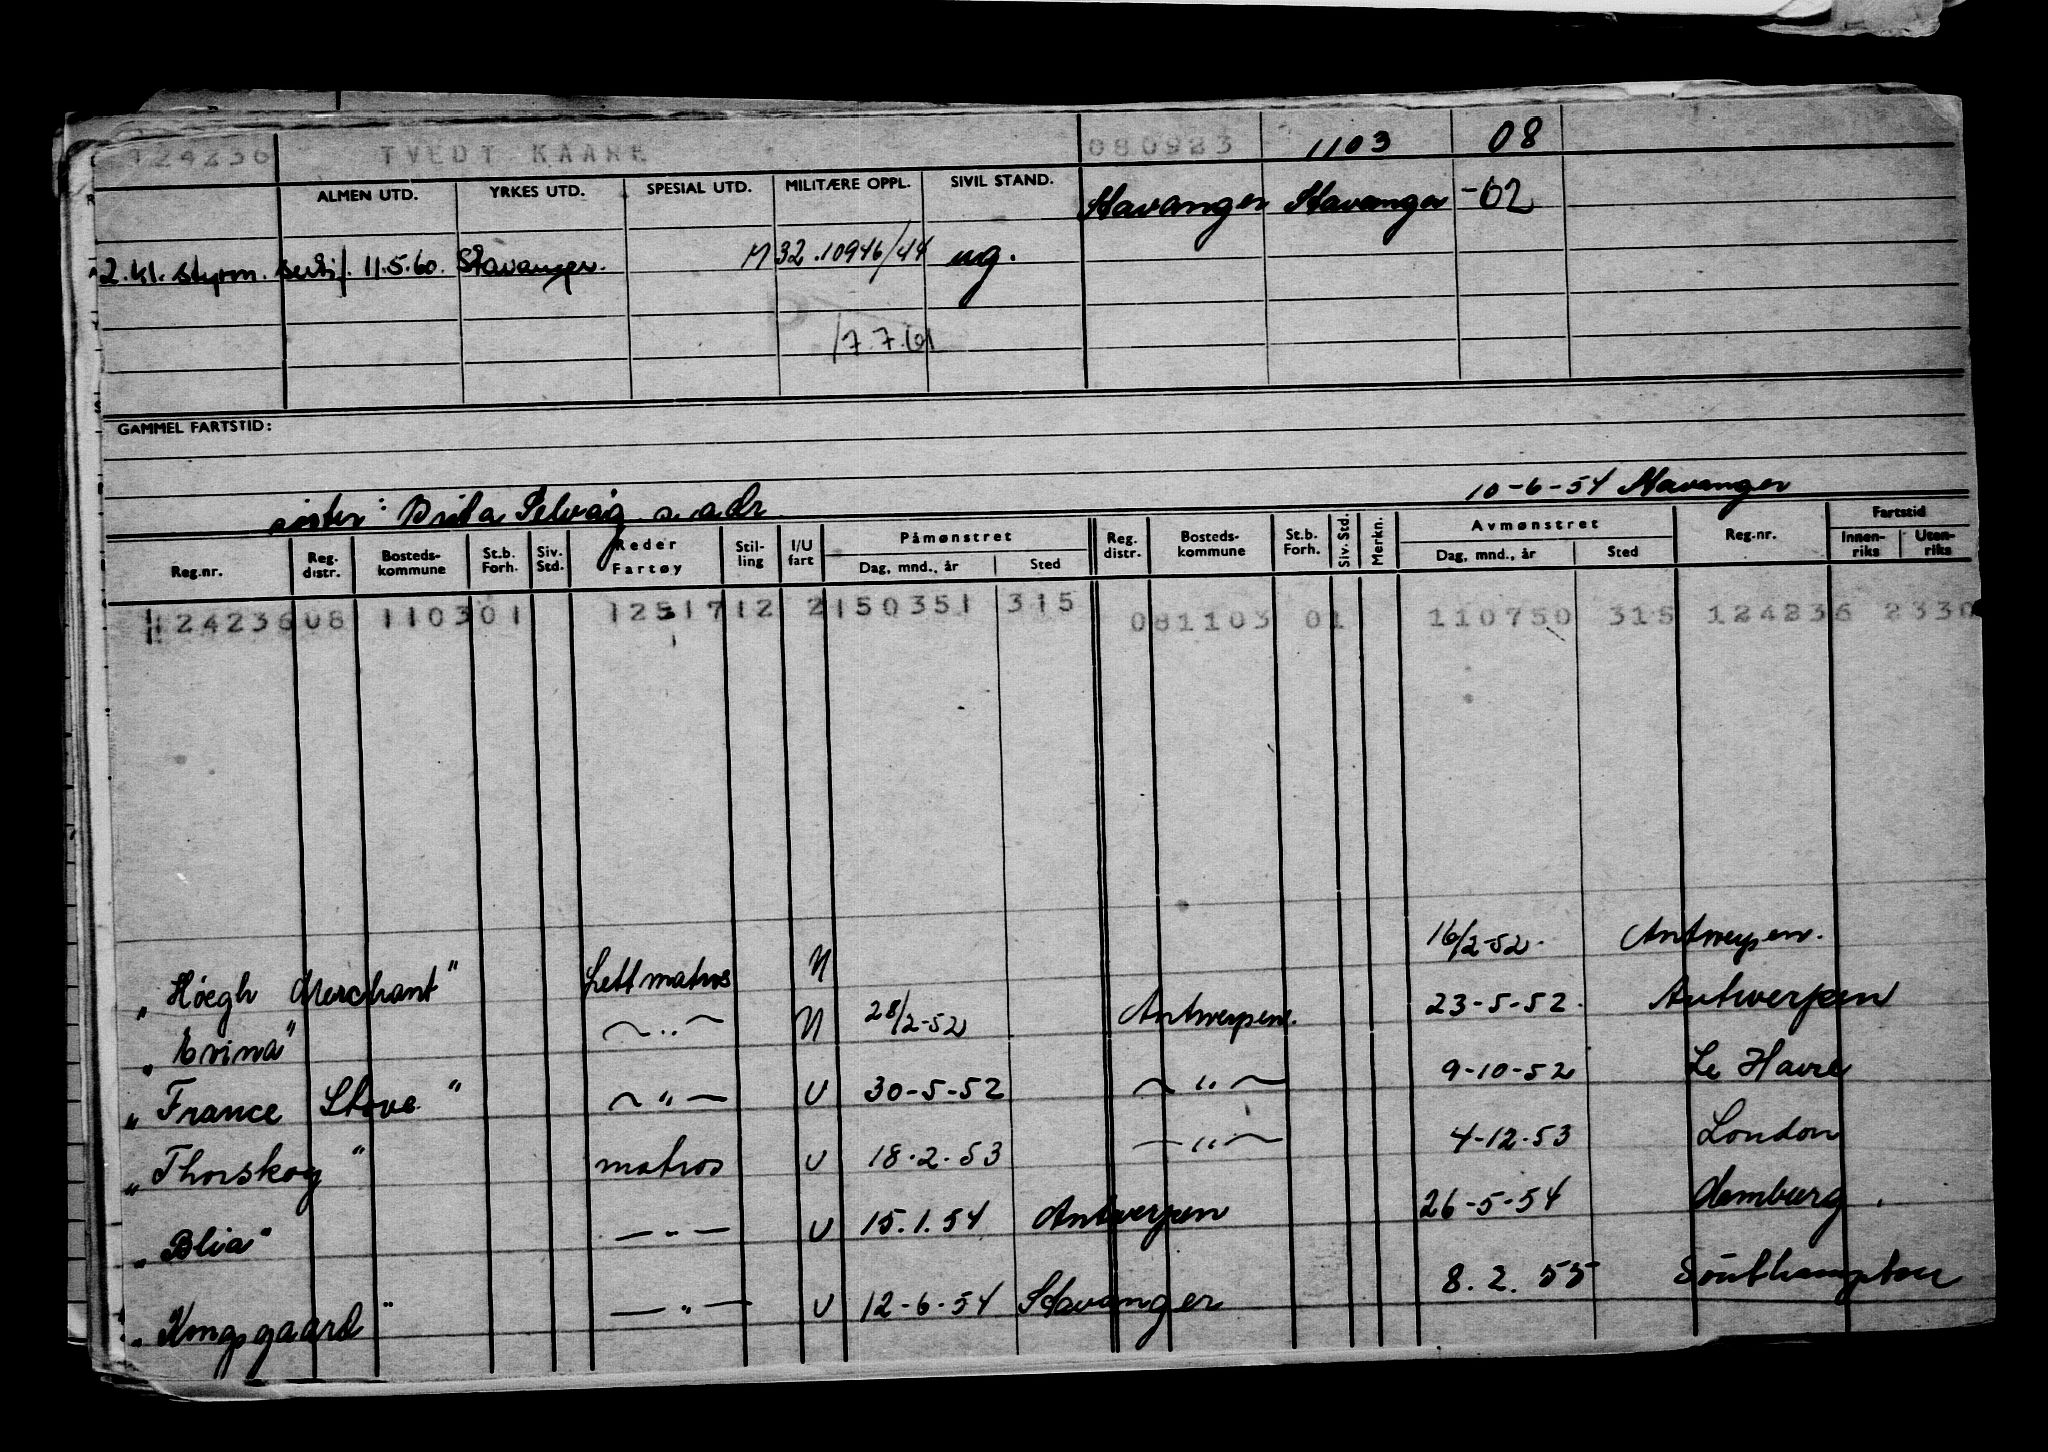 124236 TVEDT KAARE 080923 1103 08
ALMEN UTD. YRKES UTD. SPESIAL UTD. MILITÆRE OPPL. SIVIL STAND. Stavanger Stavanger -02
2.kl. styrm. sertif. 11.5.60. Stavanger. M 32.10946/44 ug.
17.7.61
GAMMEL FARTSTID:
10-6-54 Stavanger
søster: Brita Selvåg s. adr.
Reg.nr. Reg. distr. Bosteds-kommune St.b. Forh. Siv. Std. Reder Fartøy Stil-ling I/U fart Påmønstret Dag, mnd., år Sted Reg. distr. Bosteds-kommune St.b. Forh. Siv. Std. Merkn. Avmønstret Dag, mnd., år Sted Reg.nr. Fartstid Innen-riks Uten-riks
124236 08 1103 01 12517 12 2 150351 315 081103 01 110750 315 124236 2330
„Höegh Merchant" Lettmatros U 16/2-52. Antwerpen.
„Evina" -"- U 28/2-52 Antwerpen. 23-5-52. Antwerpen
„France Stove" -"- U 30-5-52 -"- 9-10-52 Le Havre
„Thorskog" matros U 18.2.53 -"- 4-12-53 London
„Blia" -"- U 15.1.54 Antwerpen 26-5-54 Hamburg.
„Kongsgaard" -"- U 12-6-54 Stavanger 8.2.55 Southampton